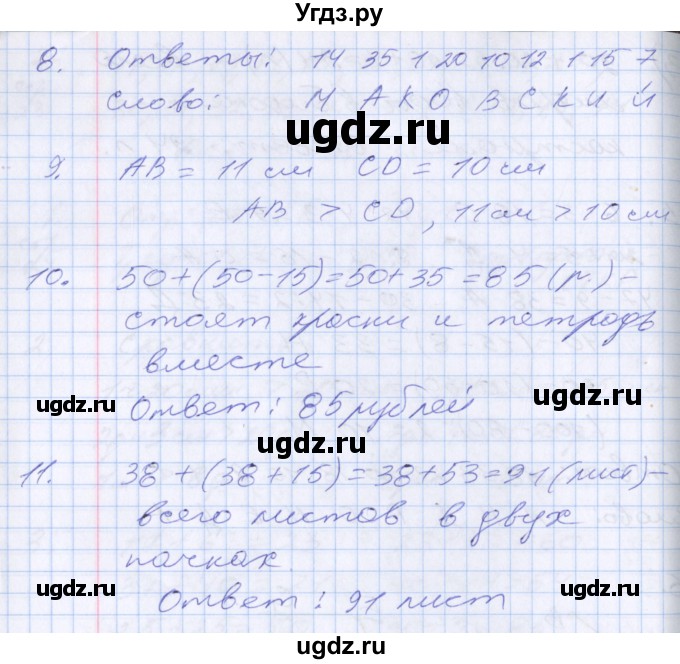 Угдз.ру
8. Ответы: 14 35 1 20 10 12 1 15 7
Слово: М А К О В С К И Й
ugdz.ru ugdz.ru
9. АВ = 11 см CD = 10 см
АВ > CD, 11 см > 10 см
ugdz.ru
10. 50+(50-15)=50+35=85 (р.) –
стоят краски и тетрадь
вместе
ugdz.ru ugdz.ru
Ответ: 85 рублей
ugdz.ru
11. 38 + (38+15)=38+53=91 (лист) –
всего листов в двух
пачках.
ugdz.ru ugdz.ru
Ответ: 91 лист
ugdz.ru